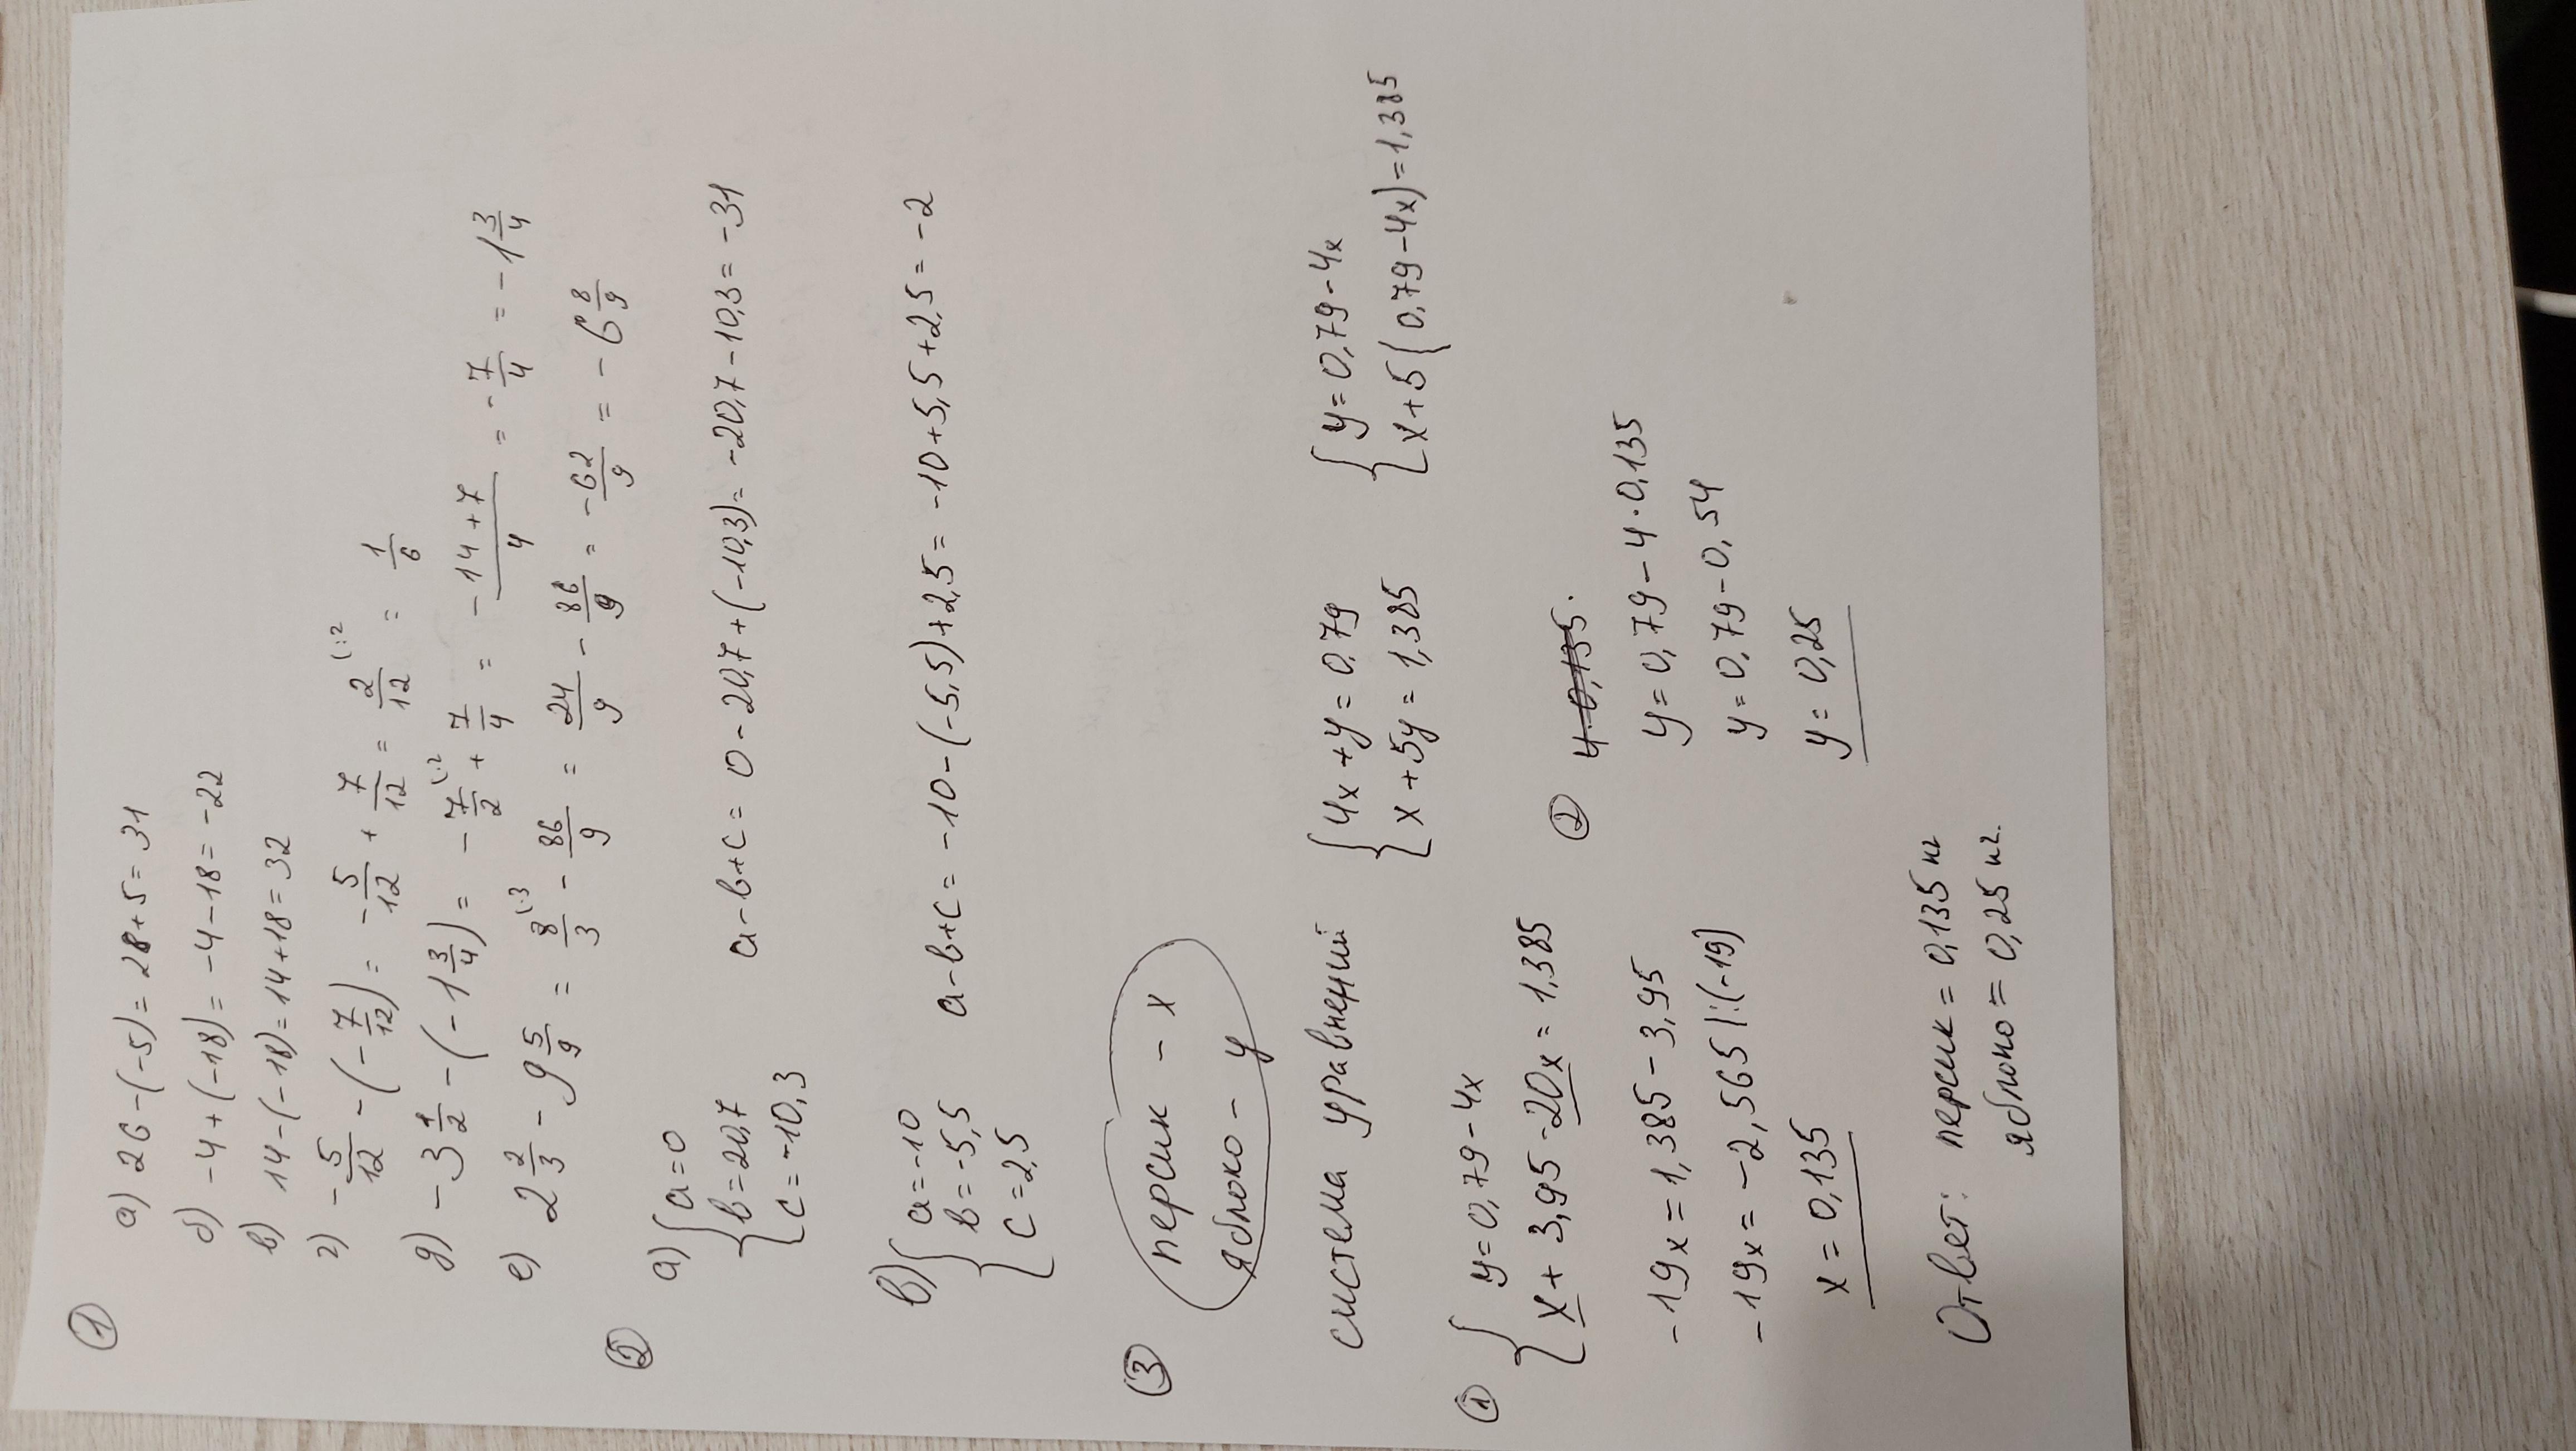 ①
а) 26-(-5)=28+5=31
б) -4+(-18)=-4-18=-22
в) 14-(-18)=14+18=32
г) -5/12-(-7/12)=-5/12+7/12=2/12(:2=1/6
д) -3 1/2-(-1 3/4)=-7/2(·2+7/4=-14+7/4=-7/4=-1 3/4
е) 2 2/3-9 5/9=8/3(·3-86/9=24/9-86/9=-62/9=-6 8/9
②
а) { a=0
b=20,7
c=-10,3
a-b+c=0-20,7+(-10,3)=-20,7-10,3=-31
в) { a=-10
b=-5,5
c=2,5
a-b+c=-10-(-5,5)+2,5=-10+5,5+2,5=-2
③
персик - x
яблоко - y
система уравнений
{ 4x+y=0,79
x+5y=1,385
{ y=0,79-4x
x+5(0,79-4x)=1,385
① { y=0,79-4x
x+3,95-20x=1,385
-19x=1,385-3,95
-19x=-2,565 |:(-19)
x=0,135
② 4·0,135·
y=0,79-4·0,135
y=0,79-0,54
y=0,25
Ответ: персик=0,135кг
яблоко=0,25кг.